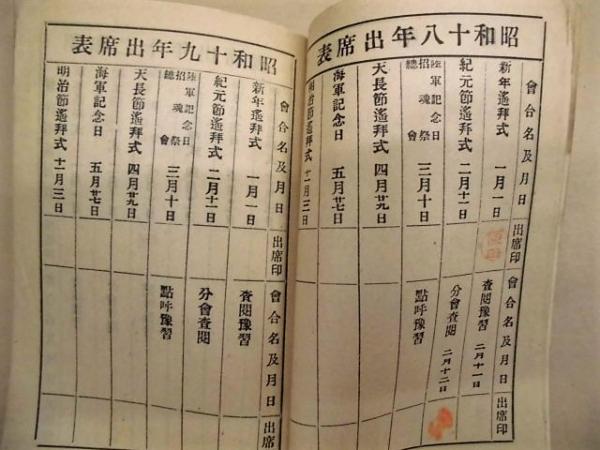 昭和十八年出席表
會合名及月日
出席印
新年遙拜式 一月一日
紀元節遙拜式 二月十一日
陸軍記念日
招魂祭
總會
三月十日
天長節遙拜式 四月廿九日
海軍記念日 五月廿七日
明治節遙拜式 十一月三日
會合名及月日
出席印
査閲豫習 二月十一日
分會査閲 二月十二日
點呼豫習
昭和十九年出席表
會合名及月日
出席印
新年遙拜式 一月一日
紀元節遙拜式 二月十一日
陸軍記念日
招魂祭
總會
三月十日
天長節遙拜式 四月廿九日
海軍記念日 五月廿七日
明治節遙拜式 十一月三日
會合名及月日
出席
査閲豫習
分會査閲
點呼豫習